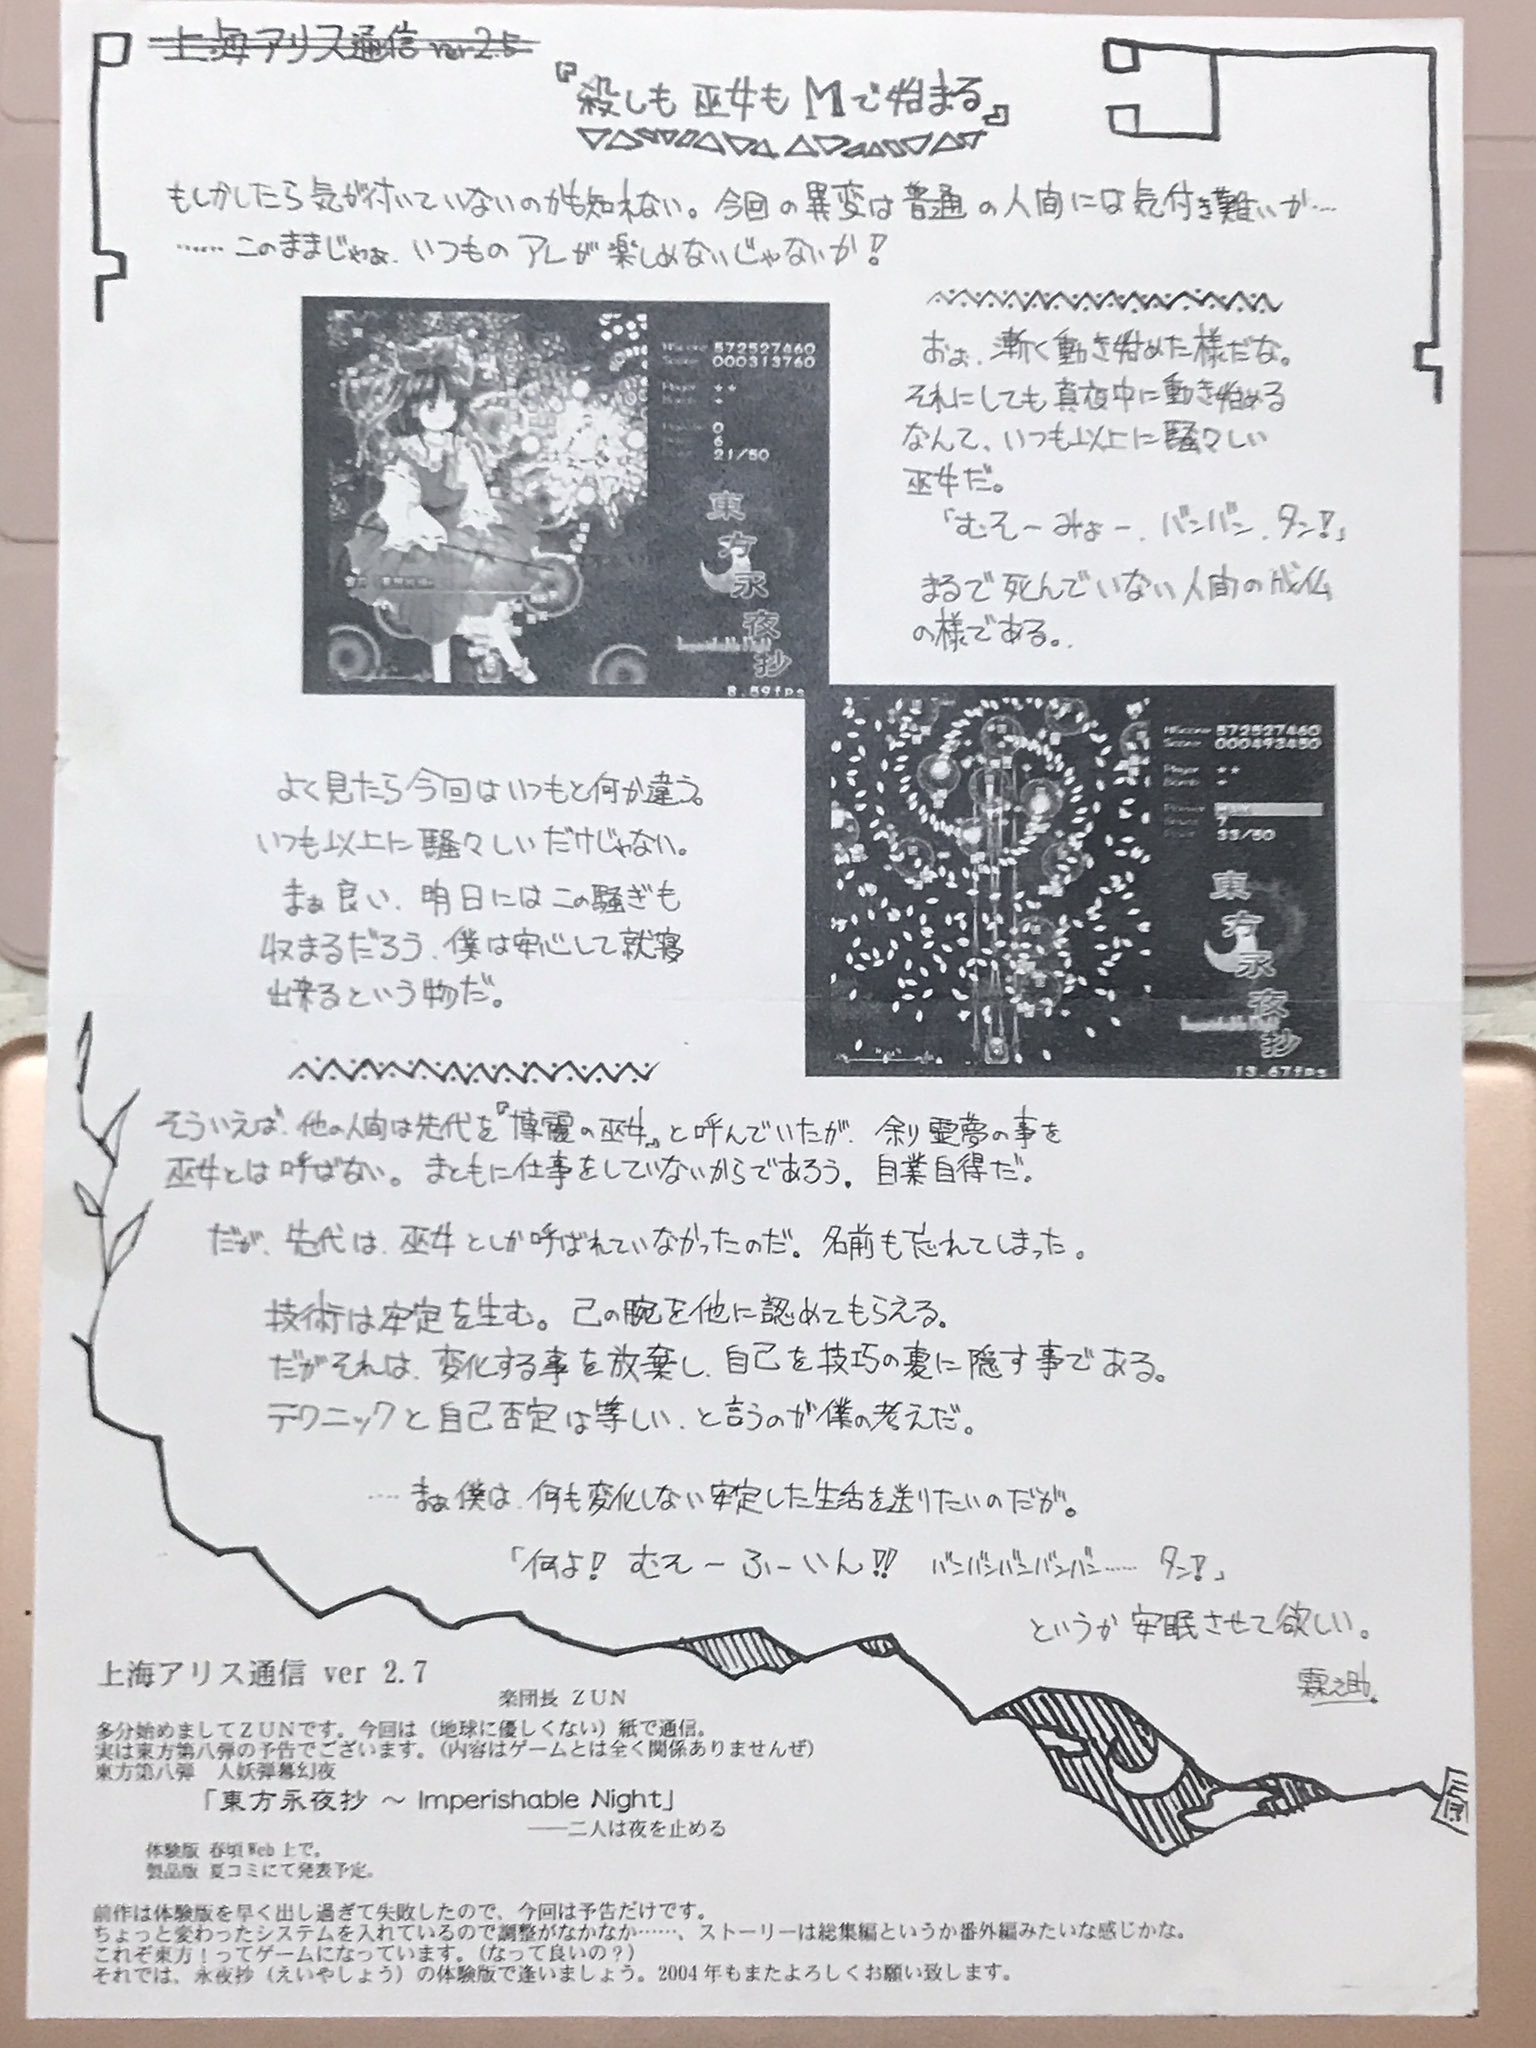 上海アリス通信 ver2.5
『殺しも 巫女も Mで始まる』
もしかしたら気が付いていないのかも知れない。今回の異変は普通の人間には気付き難いが…
……このままじゃぁ、いつものアレが楽しめないじゃないか!
おぉ、漸く動き始めた様だな。
それにしても真夜中に動き始める
なんて、いつも以上に騒々しい
巫女だ。
「むそーみょー、バンバン、タン!」
まるで死んでいない人間の成仏
の様である。
HiScore 572527460
Score 000313760
Player ★★
0
6
21/50
東方永夜抄
Imperishable Night
8.59fps
HiScore 572527460
Score 000493450
Player ★★
7
33/50
東方永夜抄
Imperishable Night
13.67fps
よく見たら今回はいつもと何か違う。
いつも以上に騒々しいだけじゃない。
まぁ良い、明日にはこの騒ぎも
収まるだろう、僕は安心して就寝
出来るという物だ。
そういえば、他の人間は先代を『博麗の巫女』と呼んでいたが、余り霊夢の事を
巫女とは呼ばない。まともに仕事をしていないからであろう。自業自得だ。
だが、先代は、巫女としか呼ばれていなかったのだ。名前も忘れてしまった。
技術は安定を生む。己の腕を他に認めてもらえる。
だがそれは、変化する事を放棄し、自己を技巧の裏に隠す事である。
テクニックと自己否定は等しい、と言うのが僕の考えだ。
……まぁ僕は、何も変化しない安定した生活を送りたいのだが。
「何よ! むそーふーいん!! バンバンバンバンバン…… タン!」
というか安眠させて欲しい。
霖之助。
上海アリス通信 ver 2.7
楽団長 ZUN
多分始めましてZUNです。今回は(地球に優しくない)紙で通信。
実は東方第八弾の予告でございます。(内容はゲームとは全く関係ありませんぜ)
東方第八弾 人妖弾幕幻夜
「東方永夜抄 ～ Imperishable Night」
――二人は夜を止める
体験版 春頃Web上で。
製品版 夏コミにて発表予定。
前作は体験版を早く出し過ぎて失敗したので、今回は予告だけです。
ちょっと変わったシステムを入れているので調整がなかなか……、ストーリーは総集編というか番外編みたいな感じかな。
これぞ東方！ってゲームになっています。(なって良いの？)
それでは、永夜抄(えいやしょう)の体験版で逢いましょう。2004年もまたよろしくお願い致します。